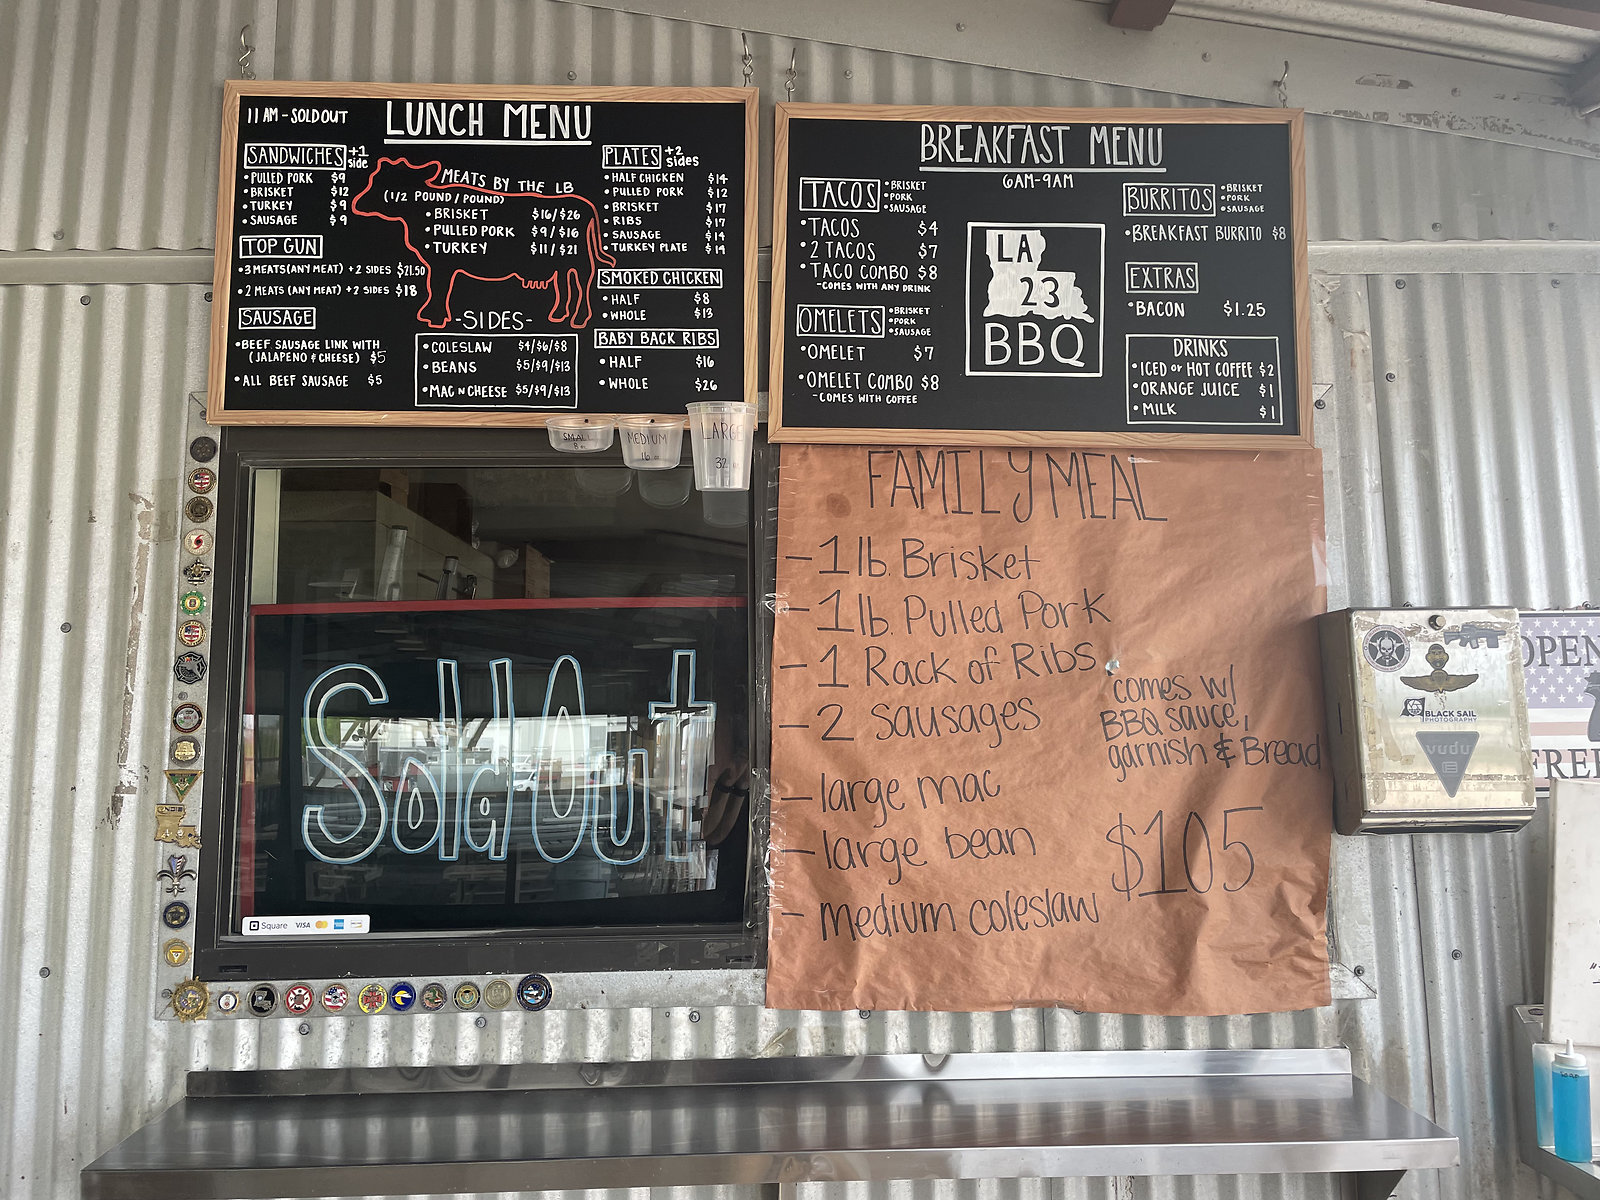 11 AM - SOLD OUT
LUNCH MENU
SANDWICHES +1 side
• PULLED PORK $9
• BRISKET $12
• TURKEY $9
• SAUSAGE $9
TOP GUN
• 3 MEATS (ANY MEAT) + 2 SIDES $21.50
• 2 MEATS (ANY MEAT) + 2 SIDES $18
SAUSAGE
• BEEF SAUSAGE LINK WITH
(JALAPENO & CHEESE) $5
• ALL BEEF SAUSAGE $5
MEATS BY THE LB
(1/2 POUND / POUND)
• BRISKET $16/$26
• PULLED PORK $9/$16
• TURKEY $11/$21
-SIDES-
• COLESLAW $4/$6/$8
• BEANS $5/$9/$13
• MAC N CHEESE $5/$9/$13
PLATES +2 sides
• HALF CHICKEN $14
• PULLED PORK $12
• BRISKET $17
• RIBS $17
• SAUSAGE $14
• TURKEY PLATE $14
SMOKED CHICKEN
• HALF $8
• WHOLE $13
BABY BACK RIBS
• HALF $16
• WHOLE $26
BREAKFAST MENU
6AM-9AM
TACOS
• BRISKET
• PORK
• SAUSAGE
• TACOS $4
• 2 TACOS $7
• TACO COMBO $8
- COMES WITH ANY DRINK
OMELETS
• BRISKET
• PORK
• SAUSAGE
• OMELET $7
• OMELET COMBO $8
- COMES WITH COFFEE
LA
23
BBQ
BURRITOS
• BRISKET
• PORK
• SAUSAGE
• BREAKFAST BURRITO $8
EXTRAS
• BACON $1.25
DRINKS
• ICED or HOT COFFEE $2
• ORANGE JUICE $1
• MILK $1
SMALL
8 oz
MEDIUM
16 oz
LARGE
32 oz
Sold Out
Square VISA
FAMILY MEAL
- 1 lb. Brisket
- 1 lb. Pulled Pork
- 1 Rack of Ribs
- 2 Sausages
comes w/
BBQ sauce,
garnish & Bread
- large mac
- large bean
- medium coleslaw
$105
BLACK SAIL
PHOTOGRAPHY
vudu
OPEN
FREE